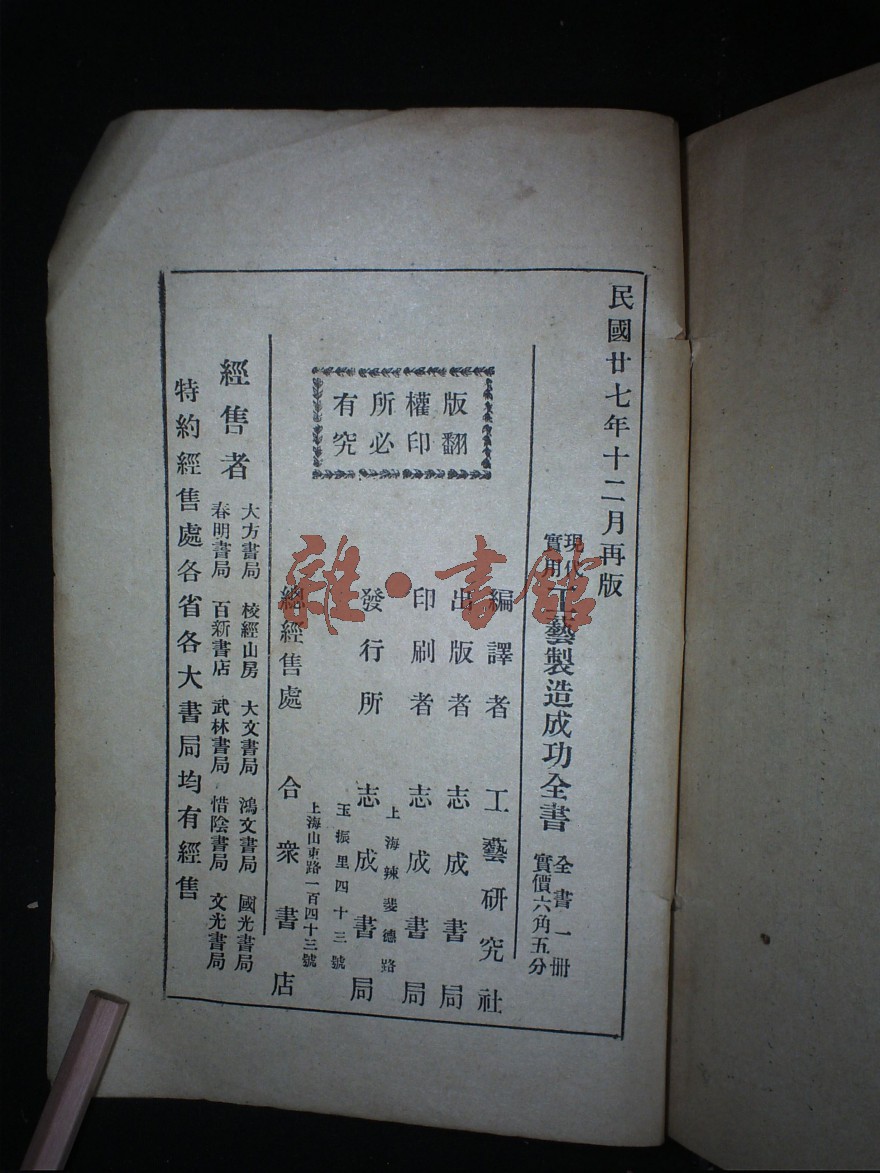 民國廿七年十二月再版
現代實用工藝製造成功全書
全書一冊
實價六角五分
版權所有
翻印必究
編譯者 工藝研究社
出版者 志成書局
印刷者 志成書局
發行所 志成書局
上海辣斐德路
玉振里四十三號
總經售處 合衆書店
上海山東路一百四十三號
經售者
大方書局 校經山房 大文書局 鴻文書局 國光書局
春明書局 百新書店 武林書局 惜陰書局 文光書局
特約經售處各省各大書局均有經售
雜·書館